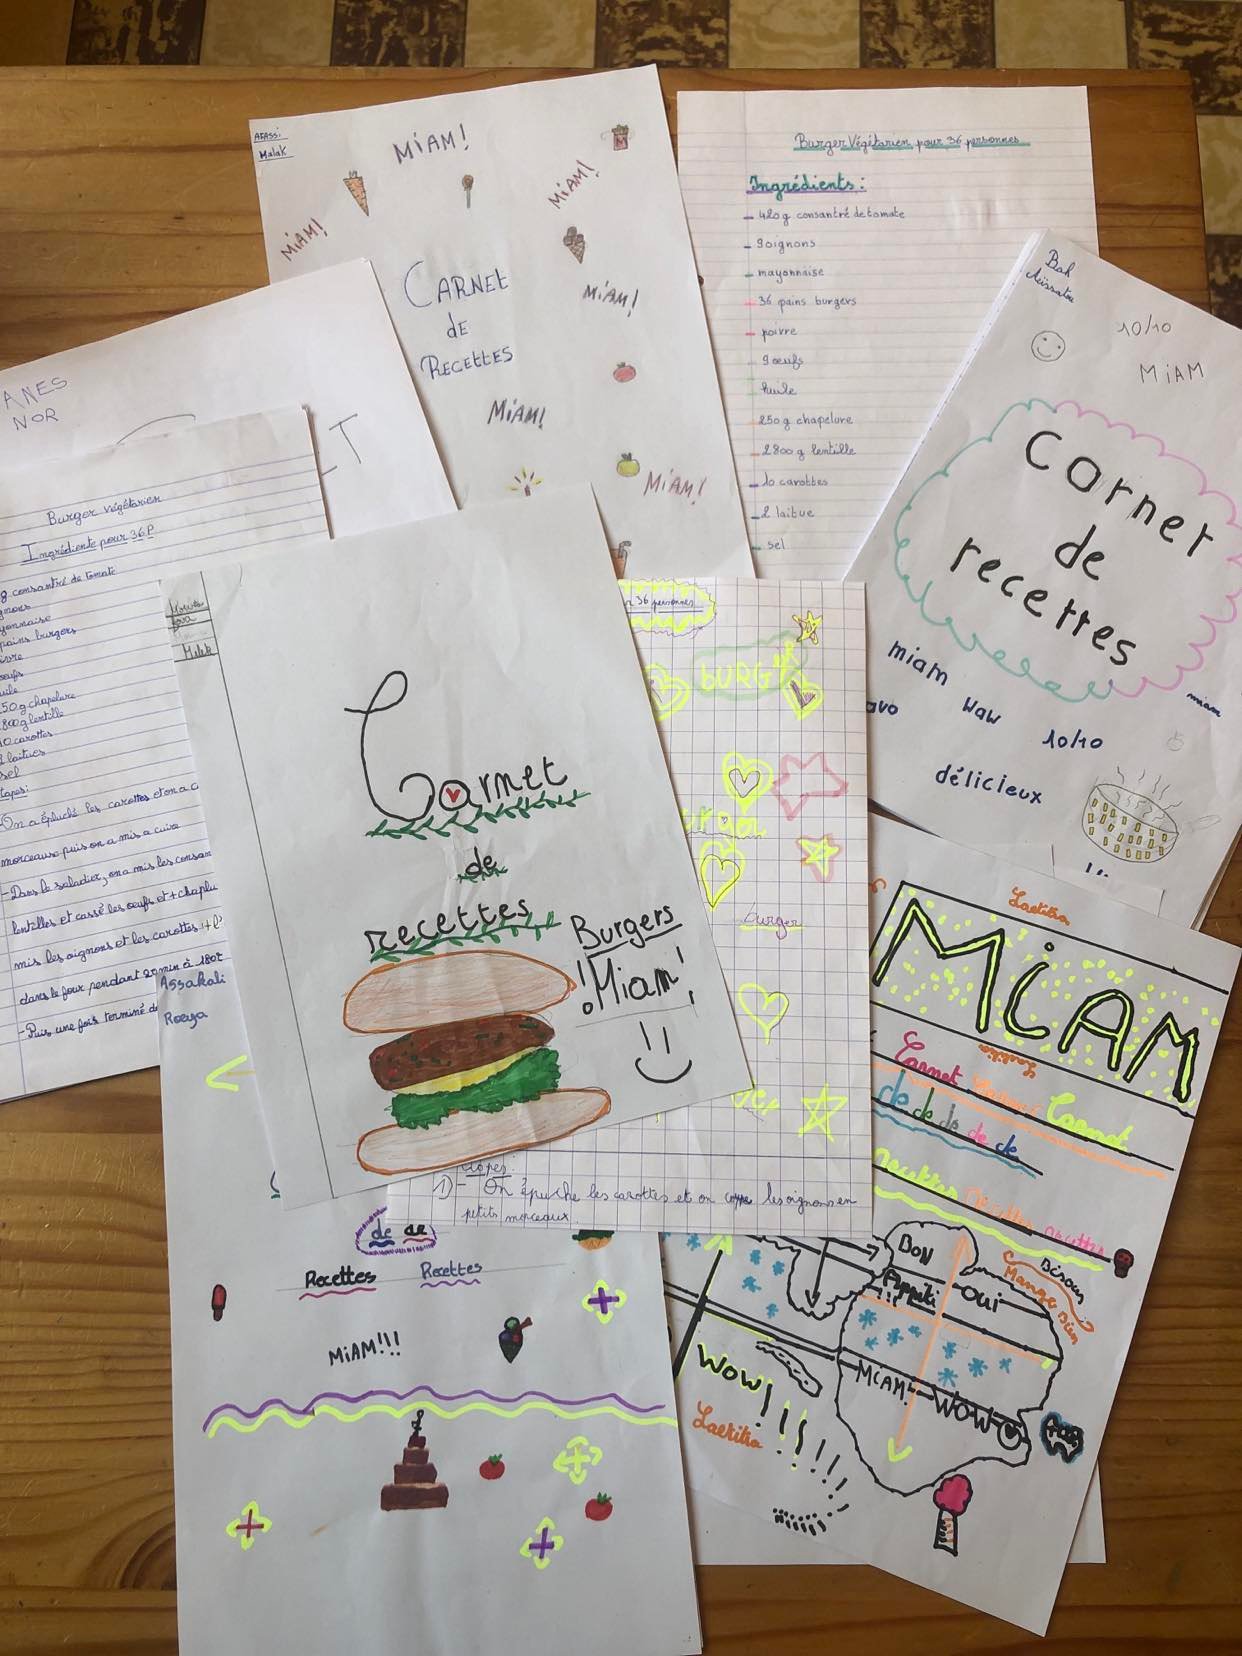 AFASSi
Malak
MiAM!
MiAM!
MiAM!
CARNEt
de
RECETTES
MiAM!
MiAM!
MiAM!
Burger Végétarien pour 36 personnes
Ingrédients :
- 420 g consantré de tomate
- 9 oignons
- mayonnaise
- 36 pains burgers
- poivre
- 9 œufs
- huile
- 250 g chapelure
- 2800 g lentille
- 10 carottes
- 2 laitue
- sel
Bah
Aïssatou
10/10
MiAM
Carnet
de
recettes
miam
waw
miam
avo
10/10
délicieux
ANES
NOR
ET
Burger végétarien
Ingrédients pour 36 P
g consantré de tomate
gnons
yonnaise
pains burgers
ivre
œufs
uile
50 g chapelure
800 g lentille
0 carottes
2 laitues
sel
tapes:
- On a épluché les carottes et on a c
morceaux puis on a mis a cuire
- Dans le saladier, on a mis les consan
lentilles et cassé les œufs et + chaplu
mis les oignons et les carottes
dans le four pendant 20 min à 180°
- Puis une fois terminé d
Malak
Carnet
de
recettes
Burgers
! Miam!
36 personnes
bURGER
urger
burger
ger
Etapes:
1) - On épuche les carottes et on coupe les oignons en
petits morceaux
Assakali
Roeya
de de
Recettes Recettes
MiAM!!!
Laetitia
MiAM
Carnet Carnet Carnet
Laetitia
de de de de de
recettes recettes recettes
BON
Appéti
!!
oui
Bisous
Mange
Bien
MiAM!
WOW
WOW!!!!!!
Laetitia